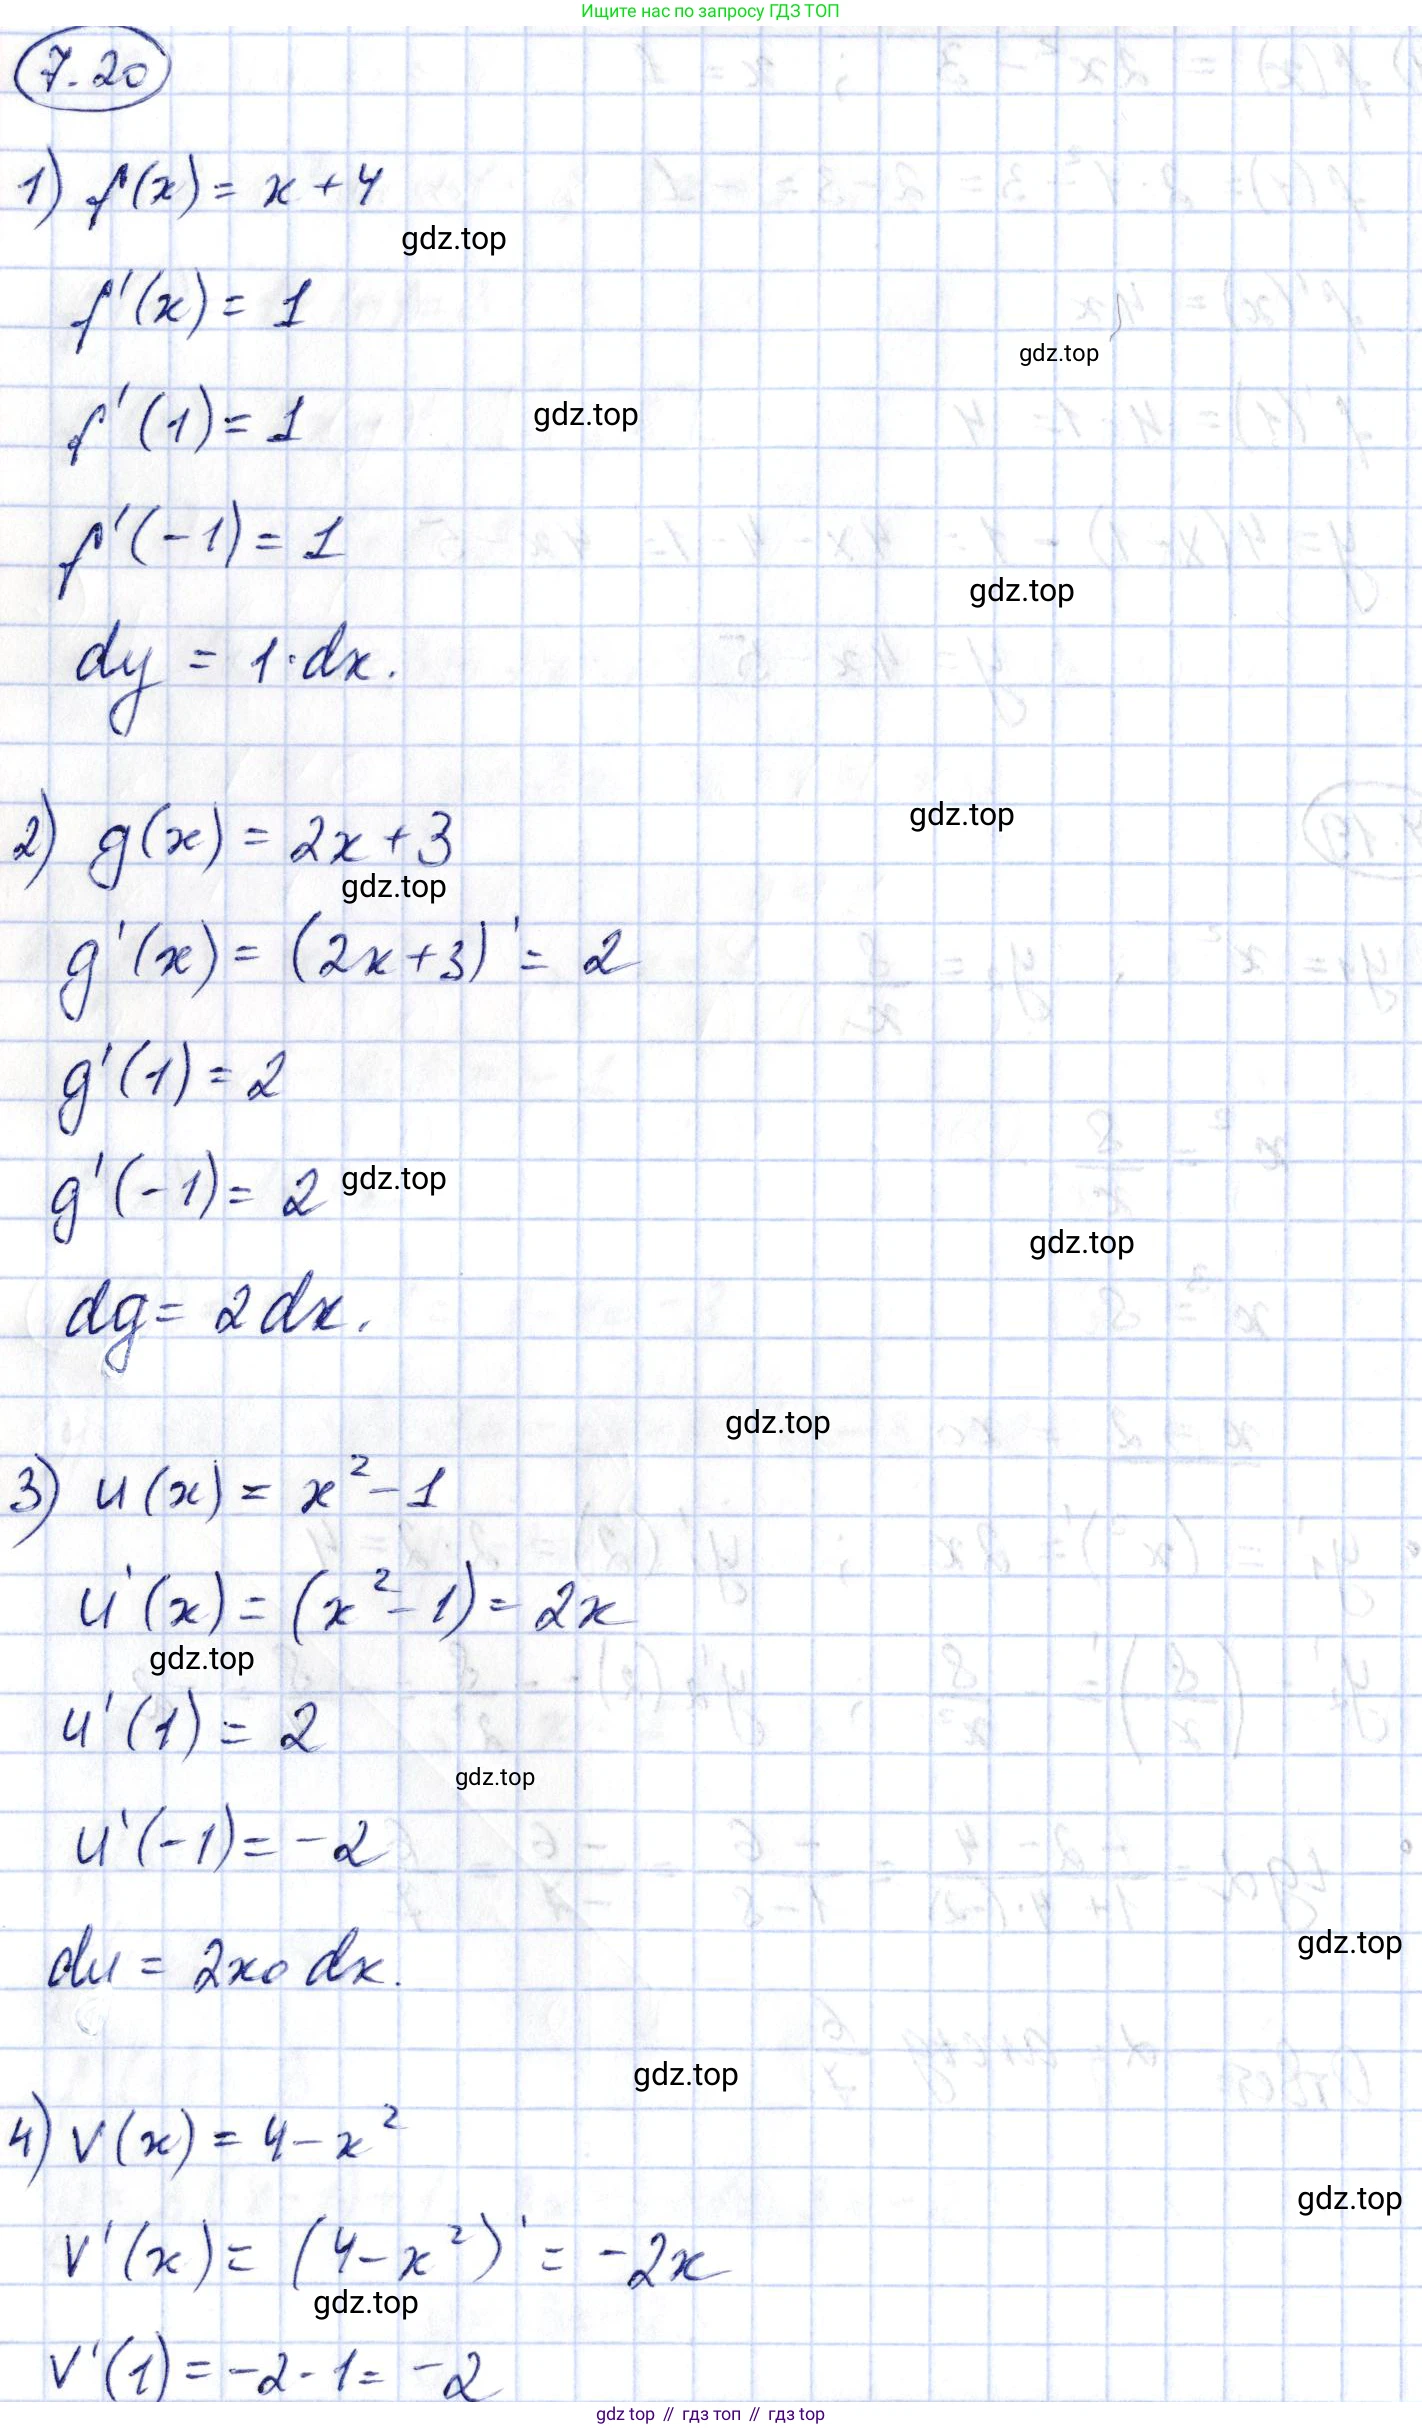 Ищите нас по запросу ГДЗ ТОП
7.20
1) f(x) = x + 4
gdz.top
f'(x) = 1
gdz.top
f'(1) = 1
gdz.top
f'(-1) = 1
gdz.top
dy = 1·dx.
gdz.top
2) g(x) = 2x + 3
gdz.top
g'(x) = (2x + 3)' = 2
g'(1) = 2
g'(-1) = 2
gdz.top
gdz.top
dg = 2dx.
gdz.top
3) u(x) = x² - 1
u'(x) = (x² - 1) = 2x
gdz.top
u'(1) = 2
gdz.top
u'(-1) = -2
gdz.top
du = 2x₀ dx.
gdz.top
4) v(x) = 4 - x²
gdz.top
v'(x) = (4 - x²)' = -2x
gdz.top
v'(1) = -2·1 = -2
gdz top // гдз топ // gdz top